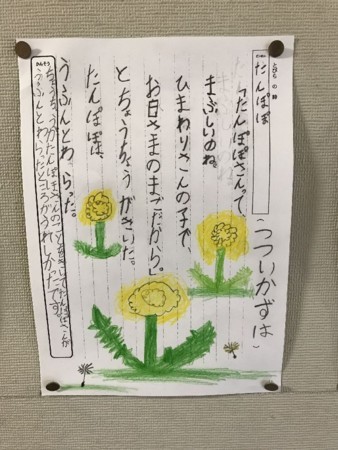 だい
たんぽぽ
(つついかずは)
「たんぽぽさんって、
まぶしいのね。
ひまわりさんの子で、
お日さまのまごだから」
とちょうちょうがきいた。
たんぽぽは、
うふんとわらった。
かんそう
ちょうちょうがたんぽぽさんのことをきいてたんぽぽさんが
うふんとわらったところがうれしかったです。